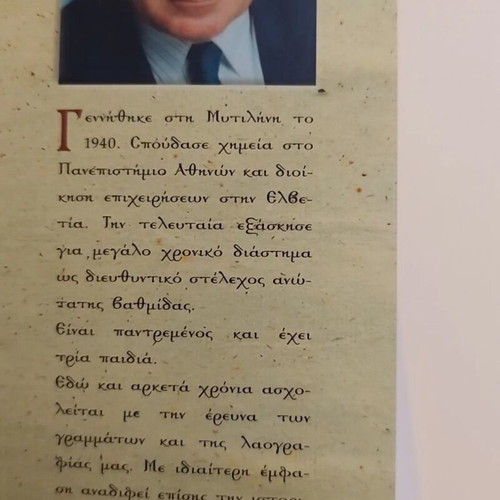 Γεννήθηκε στη Μυτιλήνη το
1940. Σπούδασε χημεία στο
Πανεπιστήμιο Αθηνών και διοί-
κηση επιχειρήσεων στην Ελβε-
τία. Την τελευταία εξάσκησε
για μεγάλο χρονικό διάστημα
ως διευθυντικό στέλεχος ανώ-
τατης βαθμίδας.
Είναι παντρεμένος και έχει
τρία παιδιά.
Εδώ και αρκετά χρόνια ασχο-
λείται με την έρευνα των
γραμμάτων και της λαογρα-
φίας μας. Με ιδιαίτερη έμφα-
ση αναδιφεί επίσης την ιστορι-